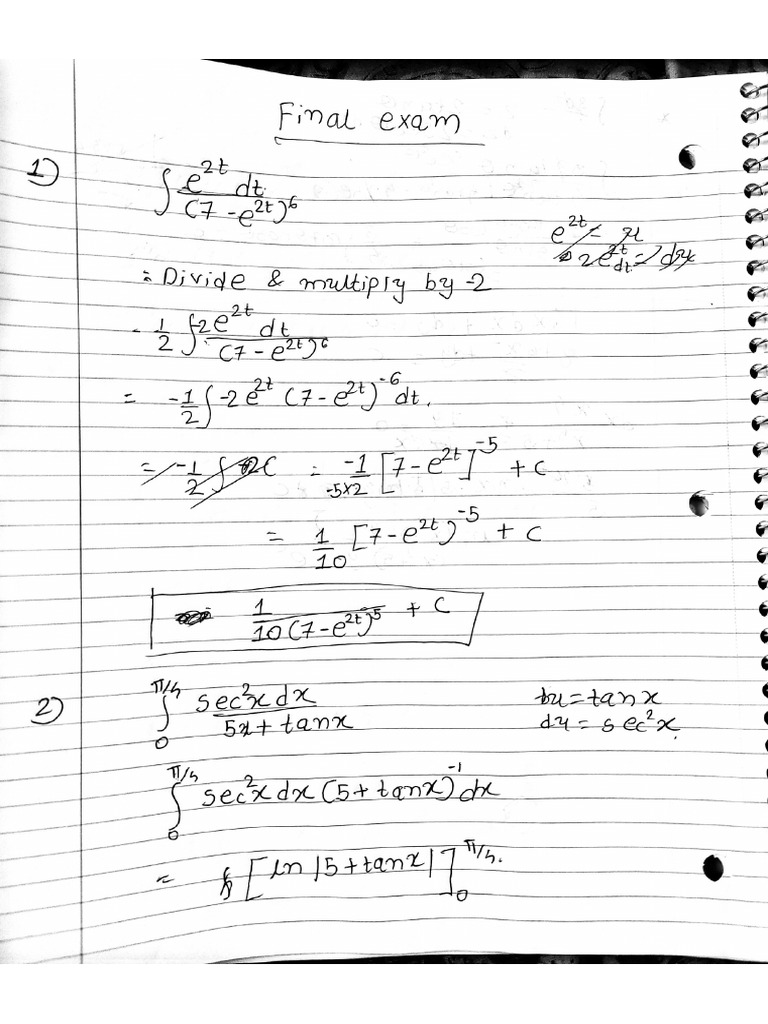 Final exam
1) ∫ e^{2t} dt / (7 - e^{2t})^6
e^{2t} = x
2e^{2t} dt = dx
= Divide & multiply by -2
- 1/2 ∫ -2e^{2t} dt / (7 - e^{2t})^6
= -1/2 ∫ -2e^{2t} (7 - e^{2t})^{-6} dt.
= -1/2 ∫ = -1/-5×2 [7 - e^{2t}]^{-5} + C
= 1/10 [7 - e^{2t})^{-5} + C
1 / 10(7 - e^{2t})^5 + C
2) ∫_0^{π/4} sec²x dx / 5x + tanx
u = tanx
du = sec²x.
∫_0^{π/4} sec²x dx (5 + tanx)^{-1} dx
= [ln |5 + tanx|]_0^{π/4}.